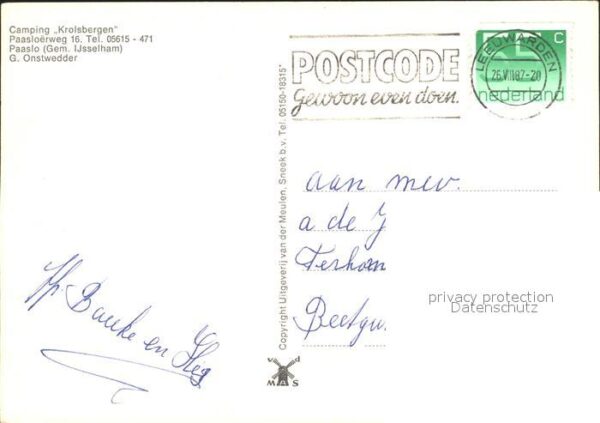 Camping „Krolsbergen"
Paasloërweg 16. Tel. 05615 - 471
Paaslo (Gem. IJsselham)
G. Onstwedder
POSTCODE
Gewoon even doen.
LEEUWARDEN
26.VIII82-20
C
nederland
Copyright Uitgeverij van der Meulen, Sneek b.v. Tel. 05150-18315*
aan mev.
a de J
Terhorn
Beetgu
privacy protection
Datenschutz
Bauke en
v d
MAS